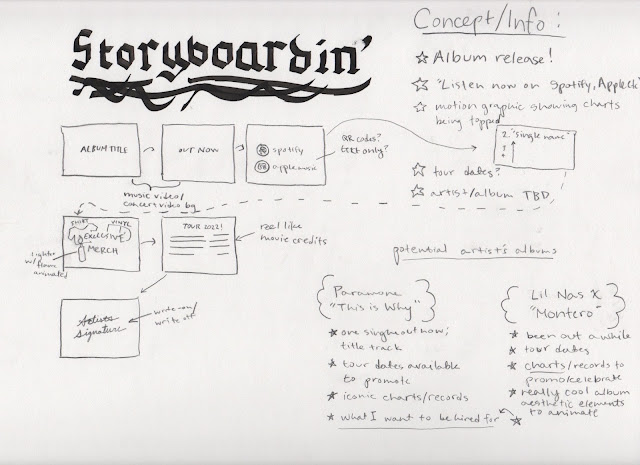 Storyboardin'
Concept/Info:
Album release!
"Listen now on Spotify, Apple, etc"
motion graphic showing charts
being topped
tour dates?
artist/album TBD
ALBUM TITLE
OUT NOW
spotify
apple music
QR codes?
text only?
"single name"
music video/
concert video bg
SHIRT
VINYL
EXCLUSIVE
MERCH
lighter
w/flame
animated
TOUR 2022!
reel like
movie credits
Artists
Signature
write on/
write off
potential artist's albums
Paramore
"This is Why"
one single out now;
title track
tour dates available
to promote
iconic charts/records
what I want to be hired for
Lil Nas X
"Montero"
been out a while
tour dates
charts/records to
promo/celebrate
really cool album
aesthetic elements
to animate